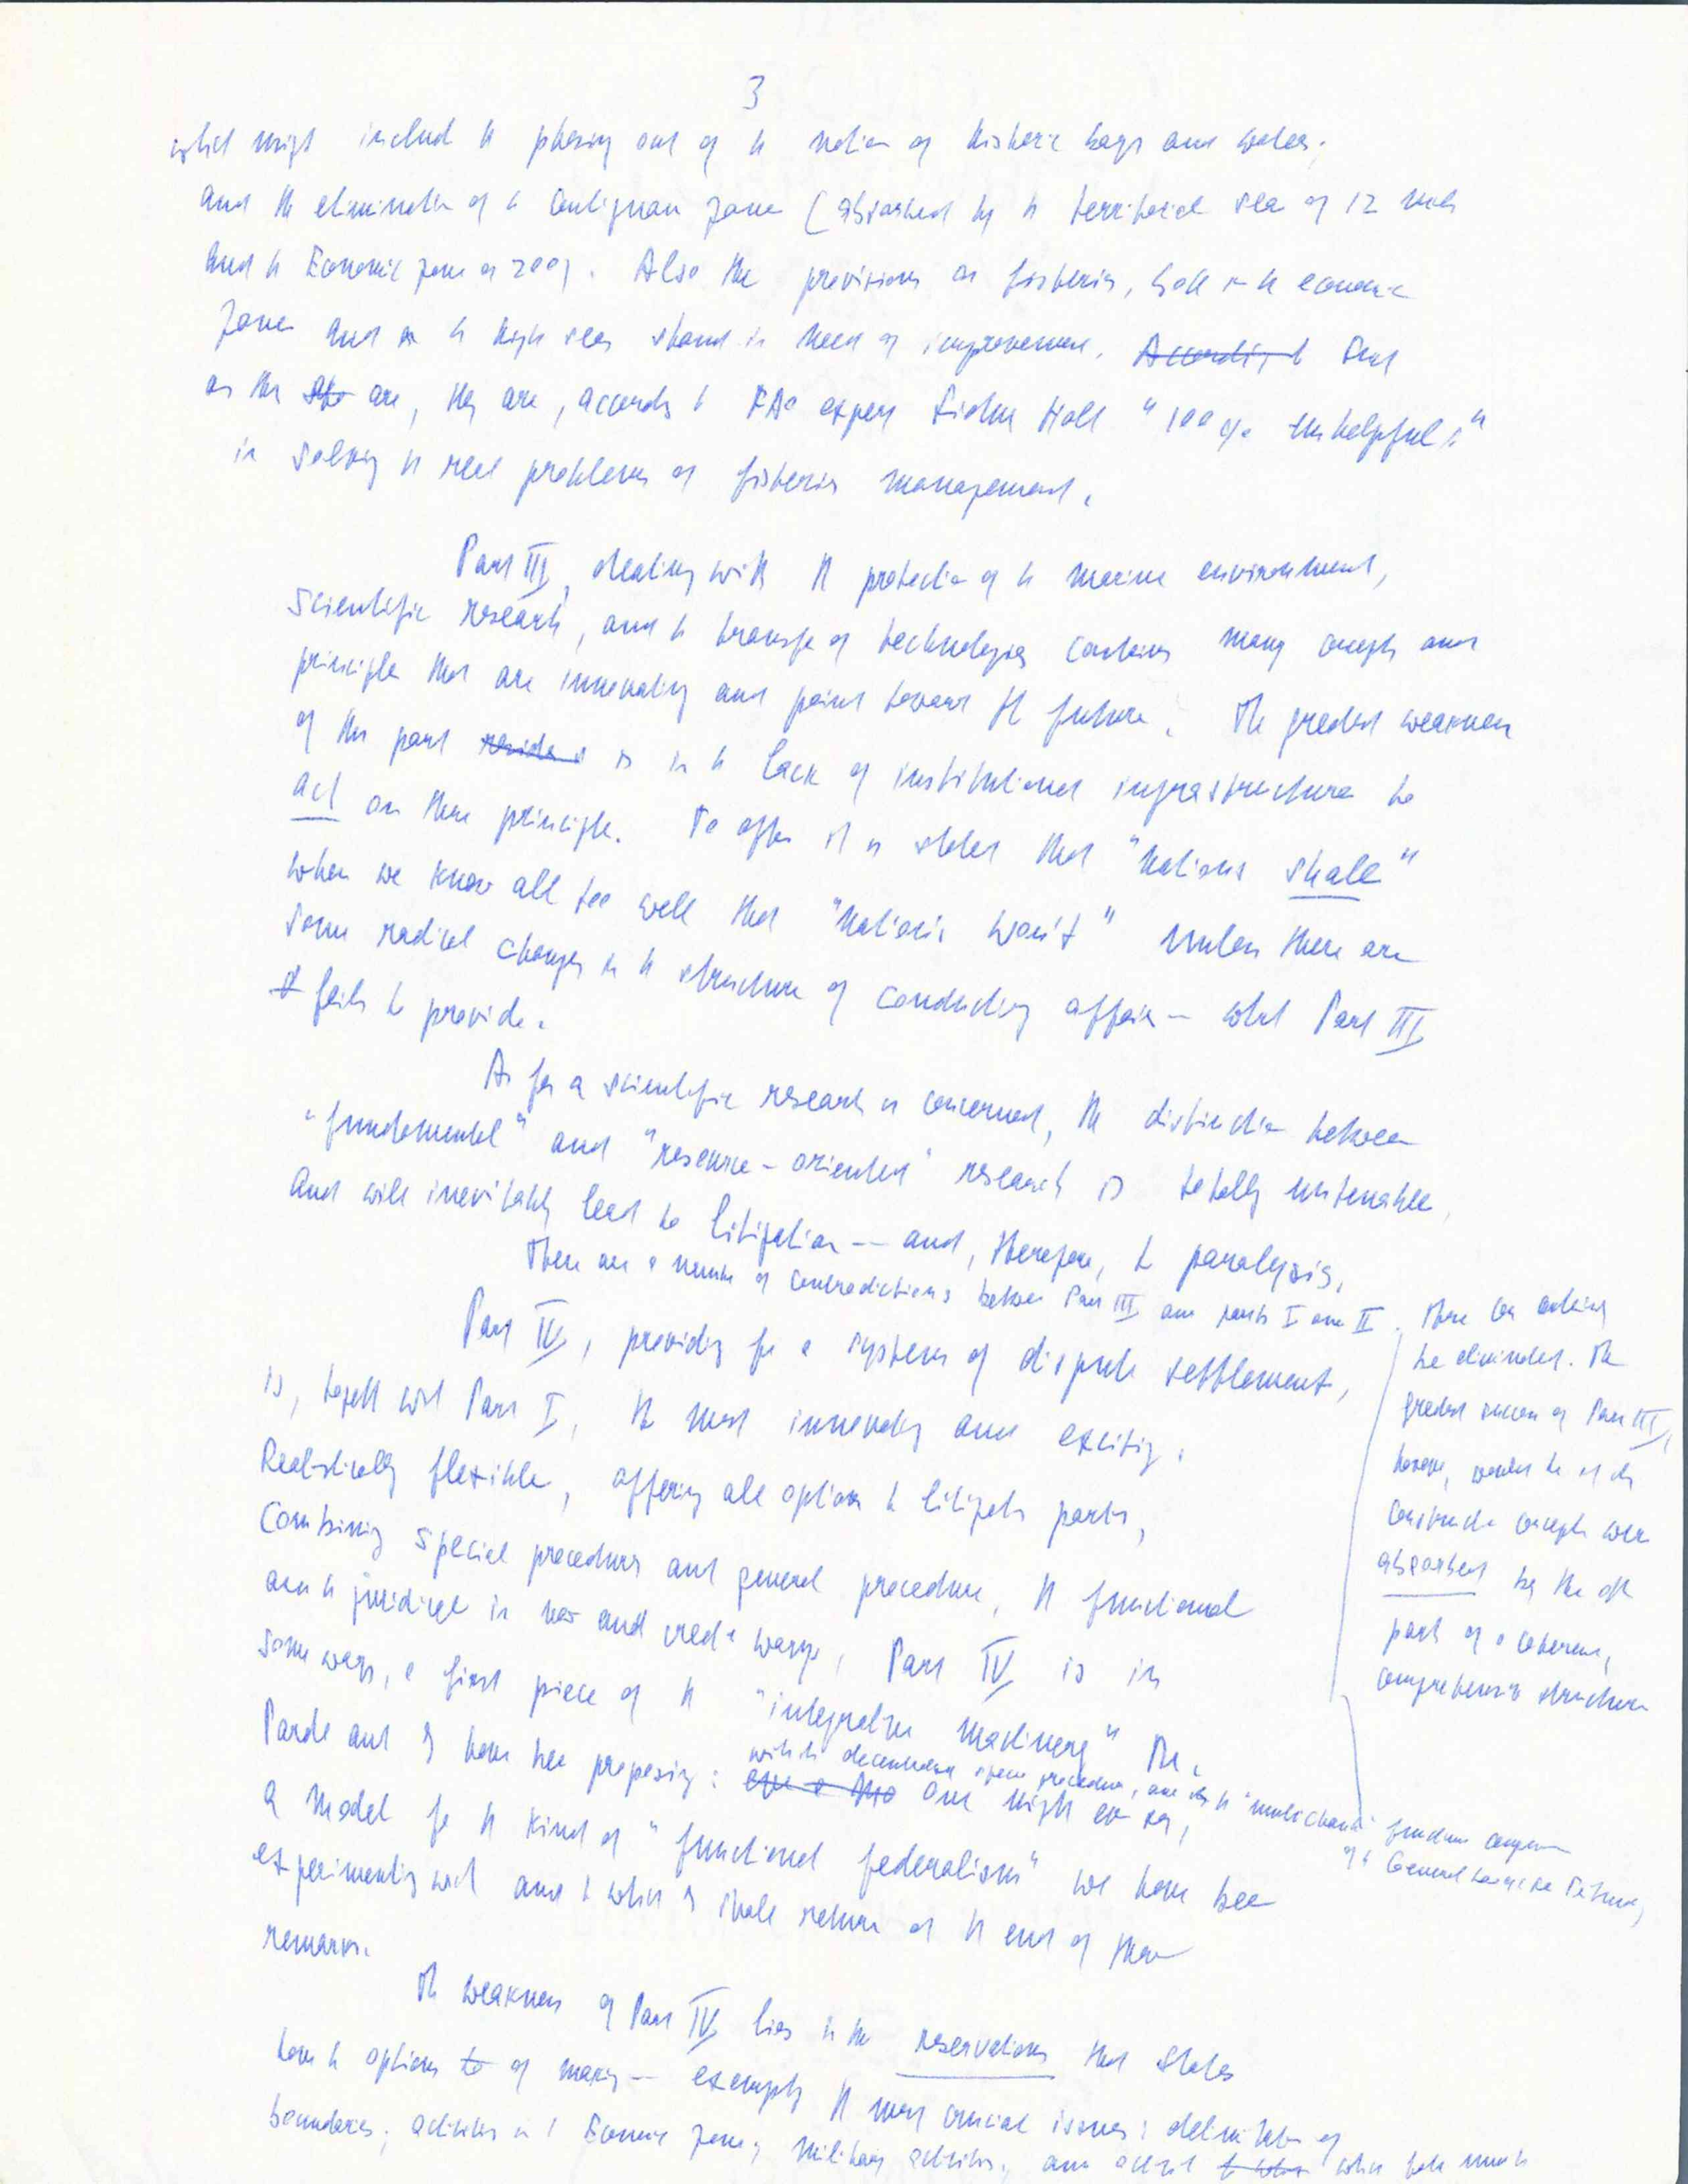 3
which might include the phasing out of the notion of historic bays and waters;
and the elimination of the contiguous zone (absorbed by the territorial sea of 12 miles
and the Economic zone of 200). Also the provisions on fisheries, both in the economic
zone and in the high seas stand in need of improvement. According to
as they are, they are, according to FAO expert Sidney Holt "100% unhelpful"
in solving the real problems of fisheries management.
Part III, dealing with the protection of the marine environment,
scientific research, and the transfer of technologies contains many concepts and
principles that are innovating and point toward the future. The greatest weakness
of this part resides is in the lack of institutional infrastructure to
act on these principles. Too often it is stated that "nations shall"
when we know all too well that "nations won't" unless there are
some radical changes in the structure of conducting affairs — what Part III
fails to provide.
As far as scientific research is concerned, the distinction between
"fundamental" and "resource-oriented" research is totally untenable,
and will inevitably lead to litigation -- and, therefore, to paralysis.
There are a number of contradictions between Part III and parts I and II. These can
be eliminated. The
greatest success of Part III,
however, would be if its
constructive concepts were
absorbed by the other
parts of a coherent,
comprehensive structure
Part IV, providing for a system of dispute settlement,
is, together with Part I, the most innovating and exciting.
Realistically flexible, offering all options to litigating parties,
combining special procedures and general procedure, the functional
and the juridical in new and creative ways, Part IV is in
some ways, a first piece of the "integrative machinery"
Pardo and I have been proposing:
with its decentralized special procedures, and the
of the General Law of the Sea Tribunal,
one might even say,
a model for the kind of "functional federalism" we have been
experimenting with and to which I shall return at the end of these
remarks.
The weakness of Part IV lies in the reservations that States
have the options to of making — exempting the most crucial issues: delimitation of
boundaries; activities in the Economic zone; military activities; and